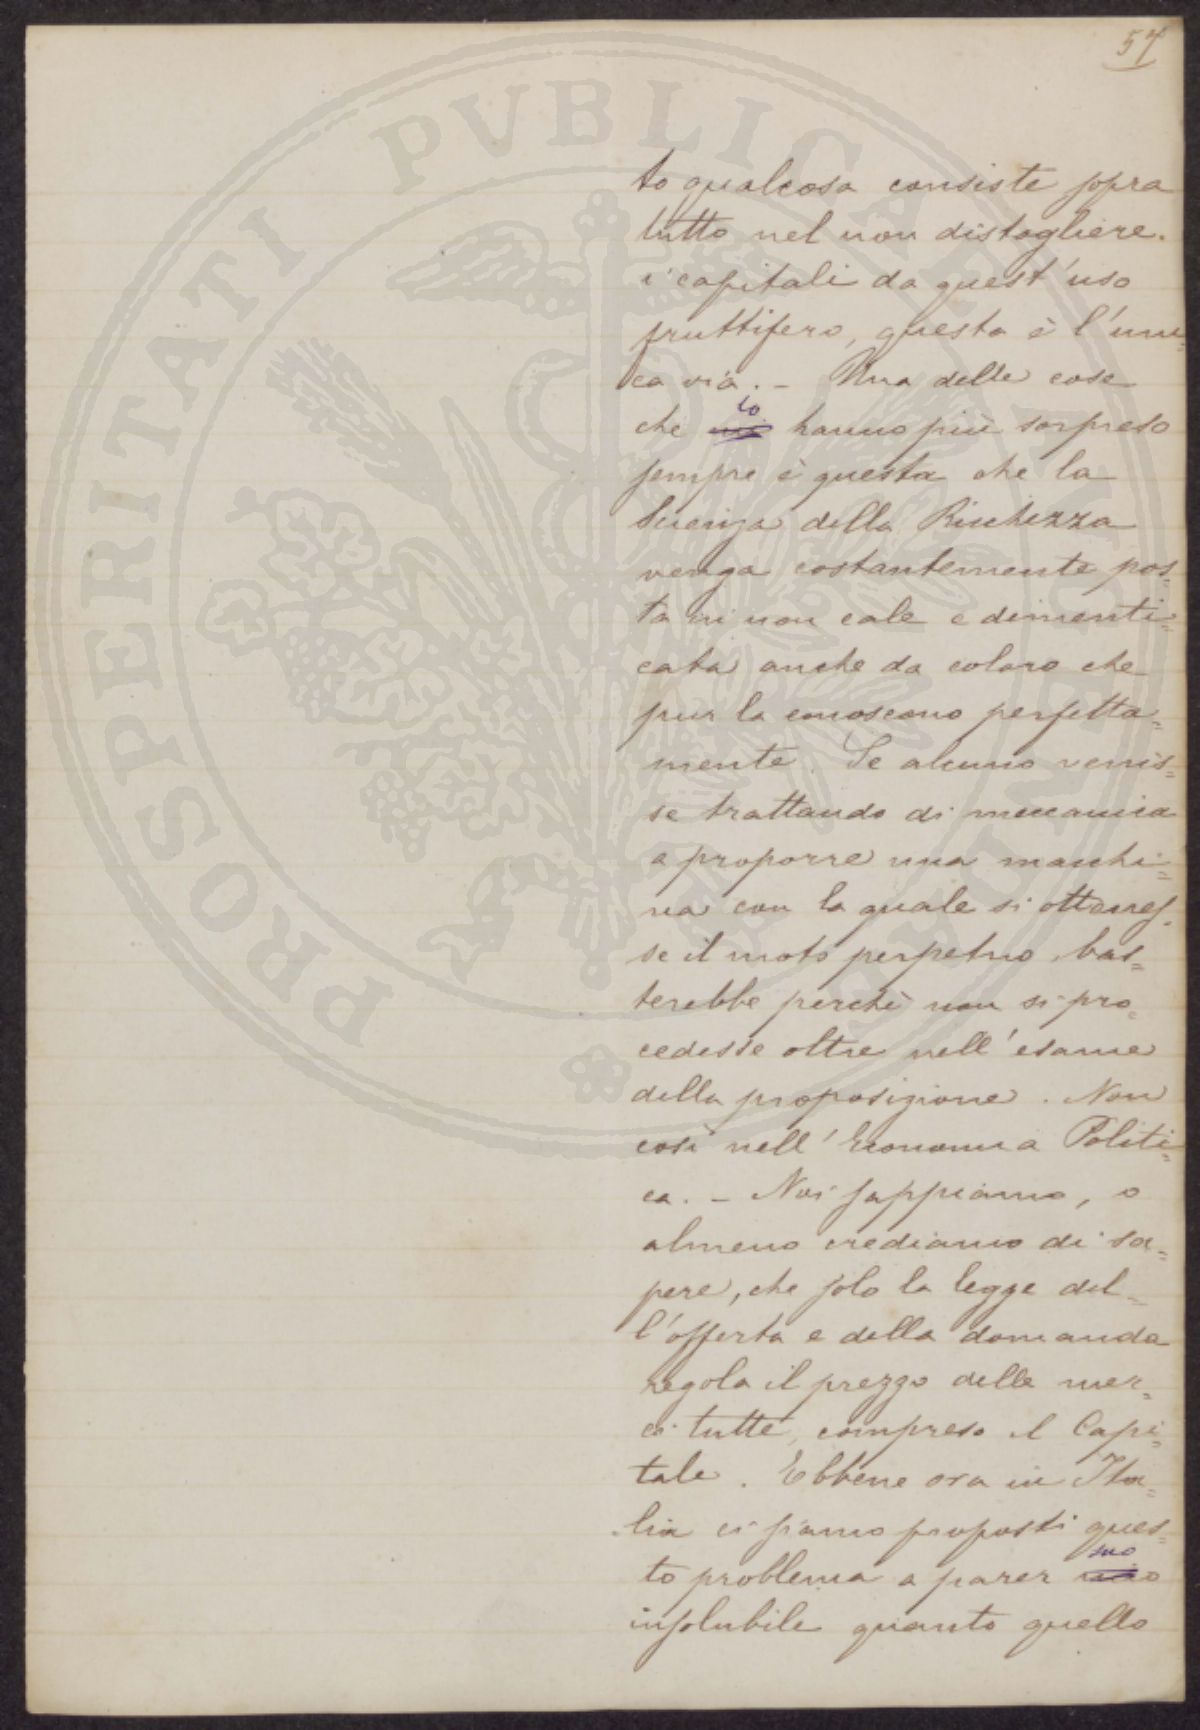 57
to qualcosa consiste sopra
tutto nel non distogliere
i capitali da quest'uso
fruttifero, questa è l'uni=
ca via. - Una delle cose
lo
che hanno più sorpreso
sempre è questa che la
Scienza della Ricchezza
venga costantemente pos=
ta in non cale e dimenti=
cata anche da coloro che
pur la conoscono perfetta=
mente. Se alcuno venis=
se trattando di meccanica
a proporre una macchi=
na con la quale si ottenes=
se il moto perpetuo, bas=
terebbe perchè non si pro=
cedesse oltre nell'esame
della proposizione. Non
così nell'Economia Politi=
ca. - Noi sappiamo, o
almeno crediamo di sa=
pere, che solo la legge del=
l'offerta e della domanda
regola il prezzo delle mer=
ci tutte, compreso il Capi=
tale. Ebbene ora in Ita=
lia ci siamo proposti ques=
suo
to problema a parer mio
insolubile quanto quello
PROSPERITATI PVBLICAE